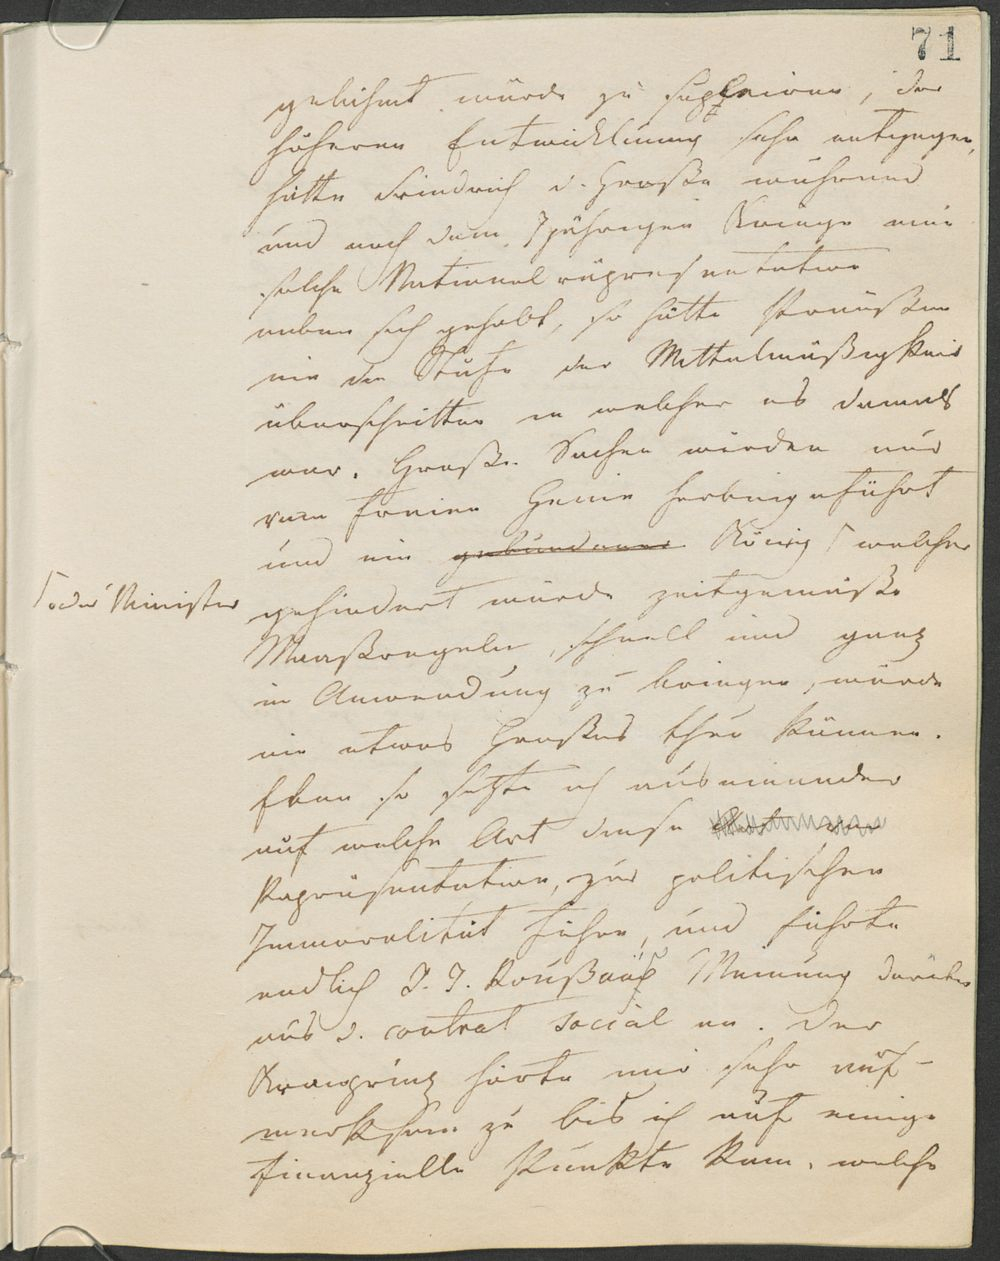 71
gelähmt würde zu supleiren, der
höheren Entwicklung sehr entgegen,
hätte Friedrich d. Große während
und nach dem 7jährigen Kriege eine
solche Nationalräpresentation
neben sich gehabt, so hätte Preußen
nie die Stufe der Mittelmäßigkeit
überschritten in welcher es damals
war. Große Sachen würden nur
vom freien Genie herbeigeführt
und ein gebundener König ⌈ welcher
⌈ oder Minister
gehindert würde zeitgemäße
Maaßregeln, schnell und ganz
in Anwendung zu bringen, würde
nie etwas Großes thun können.
Eben so setzte ich auseinander
auf welche Art diese
Repräsentation, zur politischen
Immoralität führe, und führte
endlich J. J. Roußeaus Meinung darüber
aus d. contrat social an. Der
Kronprinz hörte mir sehr auf-
merksam zu bis ich auf einige
finanzielle Punkte kam, welche